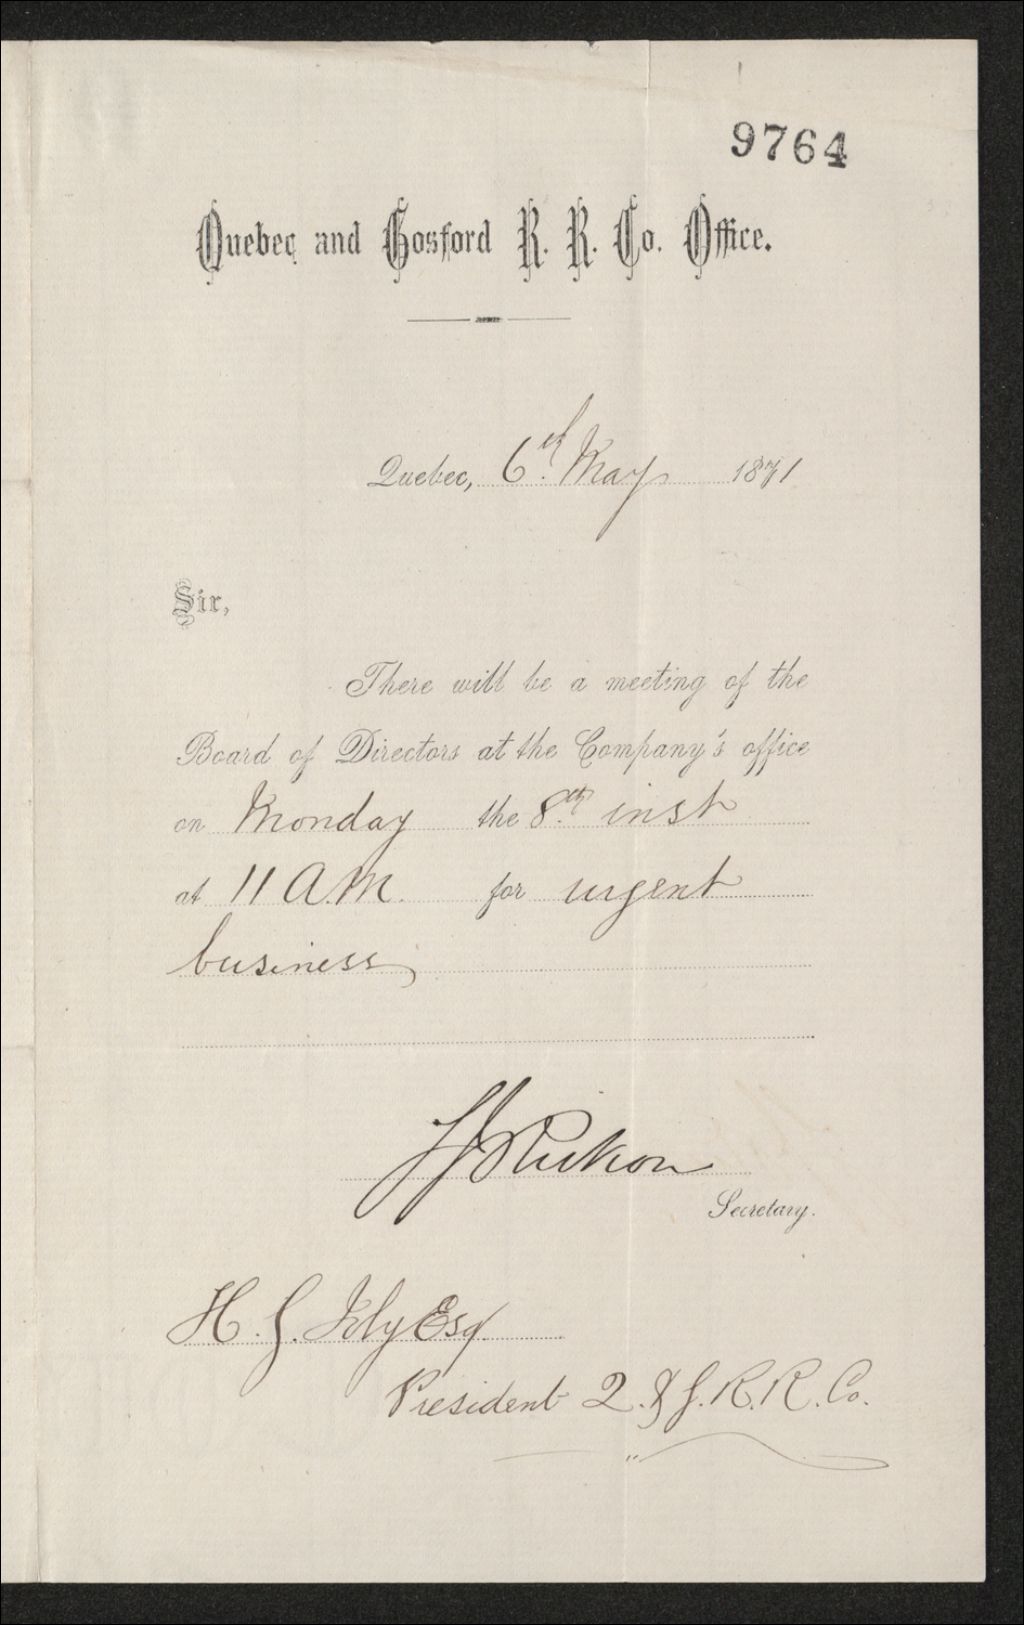 9764
Quebec and Gosford R. R. Co. Office.
Quebec, 6th May 1871
Sir,
There will be a meeting of the
Board of Directors at the Company's office
on Monday the 8th inst
at 11 A.M. for urgent
business
Secretary.
H. G. Joly Esq
President Q. & G. R. R. Co.